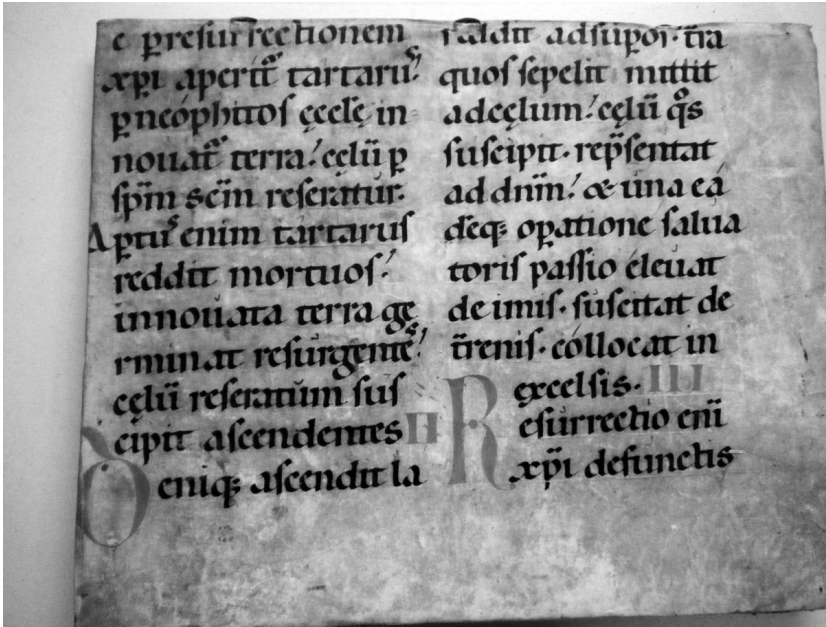 e p̱resurrectionem
xp̄i aperit᷑ tartarus!
p̱ neophitos ęcclę in
nouat᷑ terra! cęlū p̱
sp̄m sc̄m reseratur.
Apertus enim tartarus
reddit mortuos!
innouata terra ge
rminat resurgentes!
cęlū reseratum sus
cipit ascendentes II
Deniq; ascendit la
reddit adsup̱os. t̄ra
quos sepelit mittit
adcęlum! cęlū q̊s
suscipit. rep̄sentat
ad dnm̄! & una ea
deq; op̱atione salua
toris passio eleuat
de imis. suscitat de
t̄renis. collocat in
excelsis. III
Resurrectio enī
xp̄i defunctis